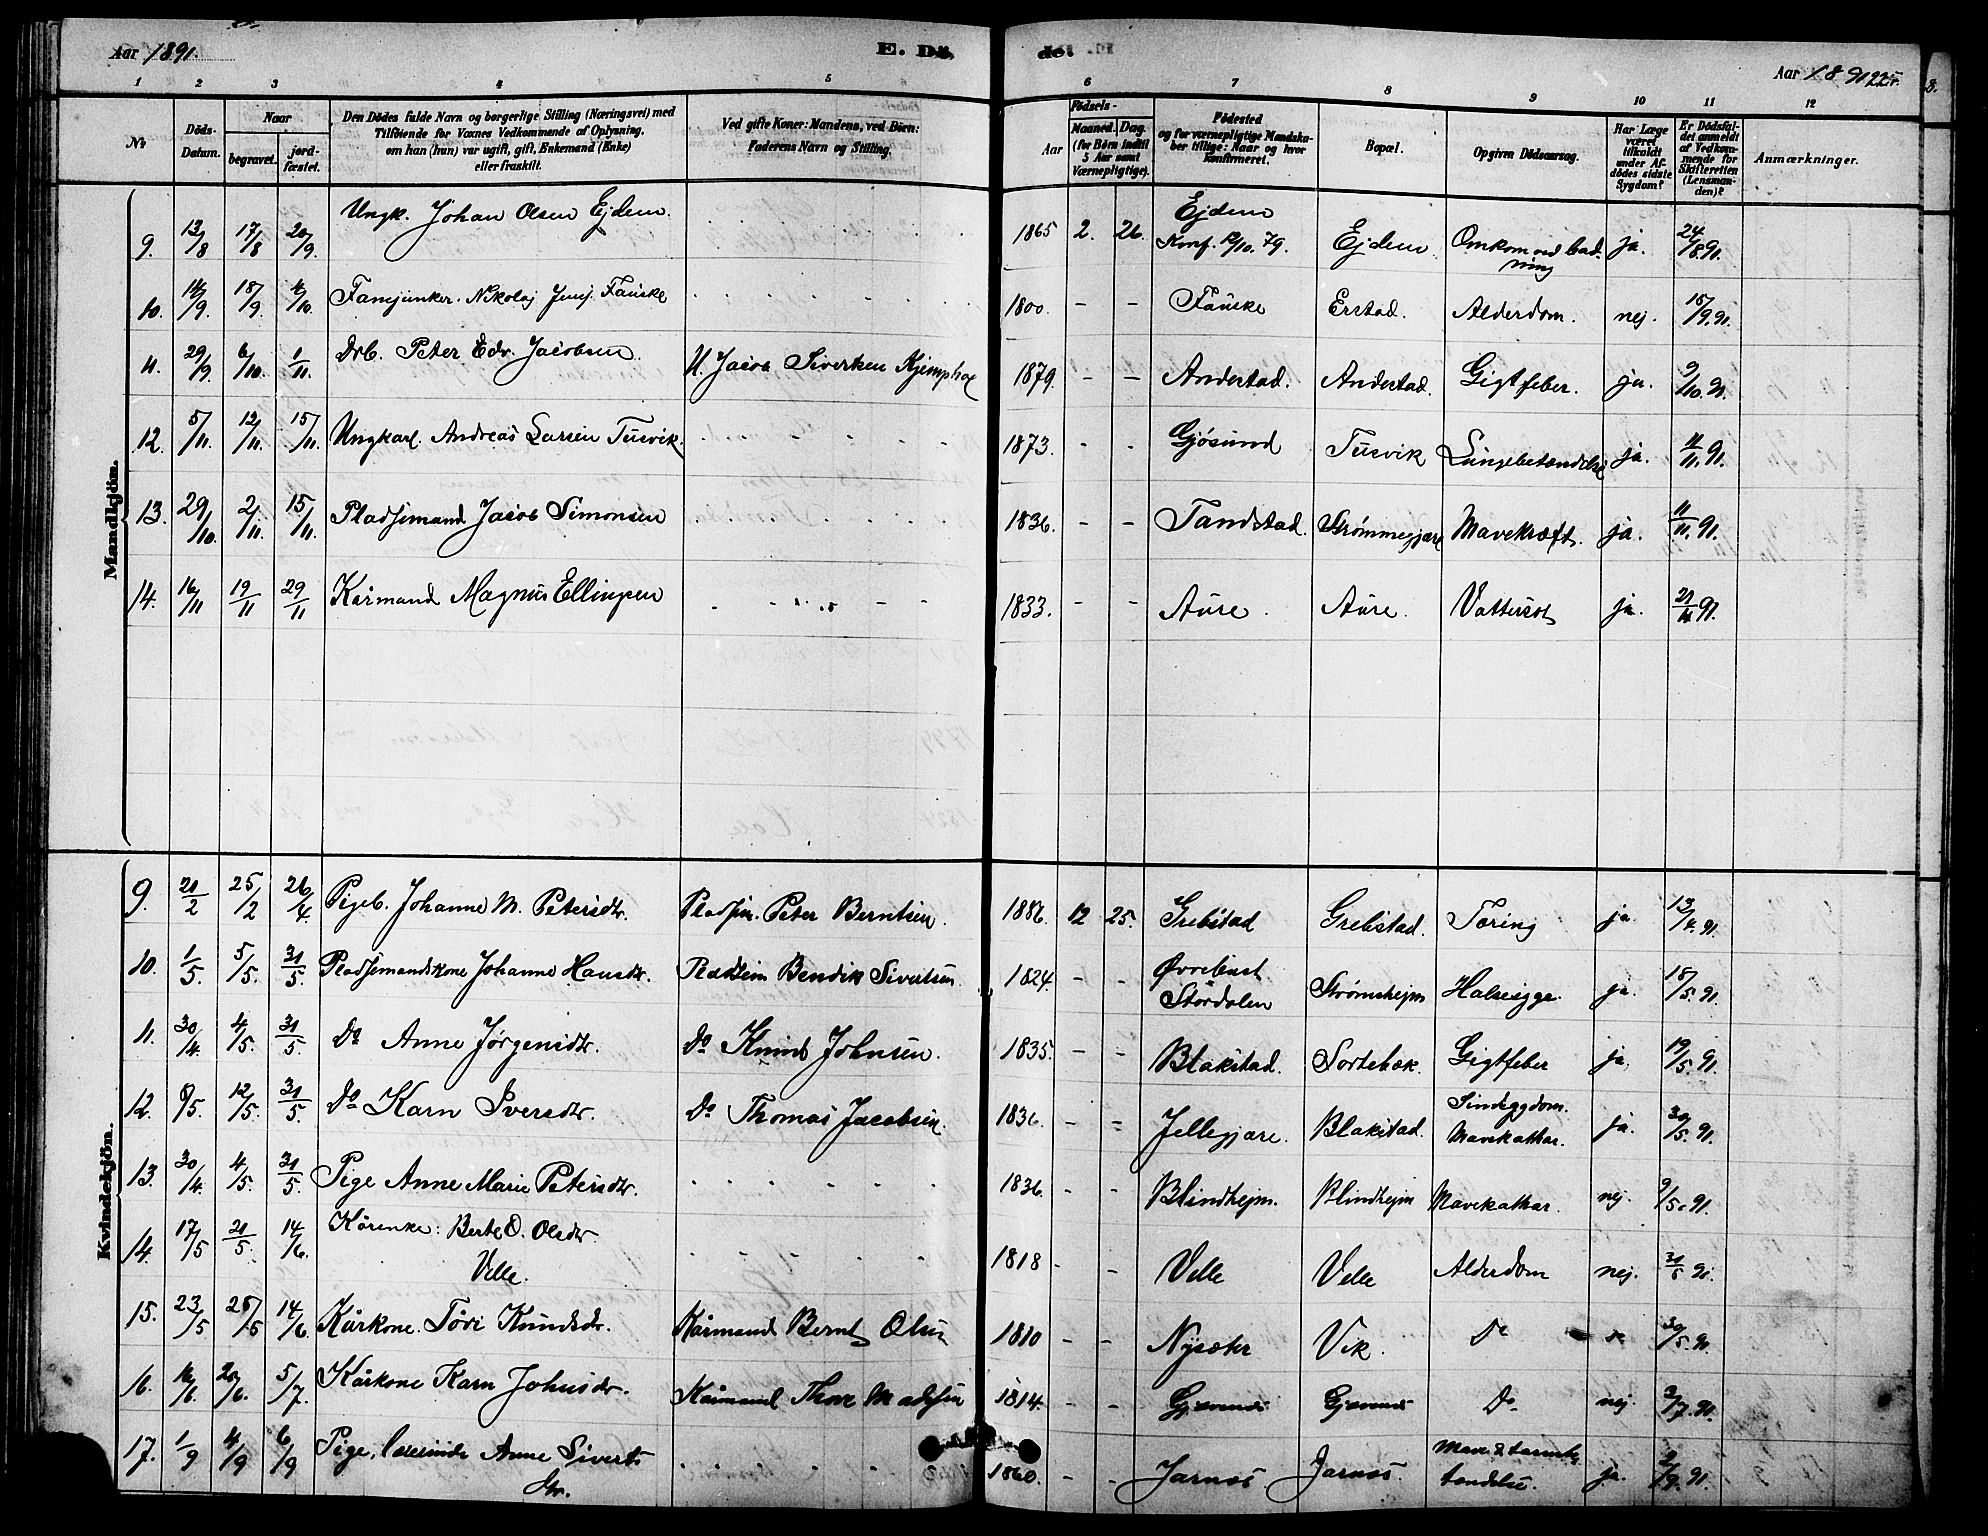 Aar 1891.
E. Dö
de:
Aar 1891
225.
1 2 3 4 5
6 7 8 9 10 11 12
No
Döds-
Datum.
Naar
begravet.
jord-
fæstet.
Den Dödes fulde Navn og borgerlige Stilling (Næringsvei) med
Tilföiende for Voxnes Vedkommende af Oplysning.
om han (hun) var ugift, gift, Enkemand (Enke)
eller fraskilt.
Ved gifte Koner: Mandens, ved Börn:
Faderens Navn og Stilling.
Födsels-
Aar
Maaned. Dag.
(for Börn indtil
5 Aar samt
Værnepligtige).
Födested
og for værnepligtige Mandska-
ber tillige: Naar og hvor
konfirmeret.
Bopæl.
Opgiven Dödsaarsag.
Har Læge
været
tilkaldt
under Af-
dödes sidste
Sygdom?
Er Dödsfal-
det anmeldt
af Vedkom-
mende for
Skifteretten
(Lensman-
den)?
Anmærkninger.
Mandkjön.
9. 13/8 17/8 20/9 Ungk. Johan Olsen Ejdem. 1865 2. 26. Ejdem Konf. 12/10. 79. Ejdem Omkom ved bad- ning ja. 24/8 91.
10. 14/9. 18/9 4/10. Fanejunker. Nikolaj Jensj. Fauske 1800. - - Fauske Erstad. Alderdom. nej. 15/9. 91.
11. 29/9. 6/10. 1/11. Drb. Peter Edv. Jacobsen. U. Jacob Sivertsen Kjemphol 1879. - - Anderstad. Anderstad. Gigtfeber. ja. 9/10. 91.
12. 5/11. 12/11. 15/11. Ungkarl. Andreas Larsen Tusvik. 1873. - - Gjøsund Tusvik Lungebetændelse ja. 11/11. 91.
13. 29/10. 2/11. 15/11. Pladsemand Jacob Simonsen 1836. - - Tandstad. Strømmegjære Mavekræft. ja. 11/11. 91.
14. 16/11 19/11 29/11 Kårmand Magnus Ellingsen 1833. - - Aure. Aure. Vattersot ja. 21/11 91.
Kvindekjön.
9. 21/2 25/2 26/4. Pigeb. Johanne M. Petersdtr. Pladsm. Peter Berntsen. 1886. 12 25. Grebstad Grebstad. Tæring ja 13/4. 91.
10. 1/5. 5/5. 31/5. Pladsemandskone Johanne Hansdtr. Pladsem Bendik Sivertsen 1824. - - Øvrebust Stordalen Strømshejm Halssyge. ja. 18/5. 91.
11. 30/4. 4/5. 31/5. Do Anne Jørgensdtr. Do Knud Johnsen. 1835. - - Blakstad. Sortehok. Gigtfeber ja. 19/5. 91.
12. 8/5. 12/5. 31/5. Do Karn Iversdtr. Do Thomas Jacobsen. 1836. - - Jellegjære. Blakstad. Sindsygdom. Mavekathar. ja. 30/5. 91.
13. 30/4. 4/5. 31/5. Pige Anne Marie Petersdtr. 1836. - - Blindhejm. Blindhejm Mavekathar. nej. 9/5. 91.
14. 17/5 21/5. 14/6. Kårenke: Berte O. Olsdtr. Velle. 1818 - - Velle Velle Alderdom nej. 31/5 91.
15. 23/5 26/5 14/6 Kårkone. Tøri Knudsdr. Kårmand Bernt Olsen 1810 - - Nysæter Vik. Do do 30/5. 91.
16. 16/6. 20/6. 5/7. Kårkone Karn Johnsdtr. Kårmand Thore Madssen 1814. - - Gjævenes Gjævenes Do nej. 3/7. 91.
17. 1/9 4/9 6/9 Pige, lærerinde Anne Siverts dtr. 1860. - - Jarnæs Jarnæs. Mave & tarmbe tændelse. ja. 2/9. 91.